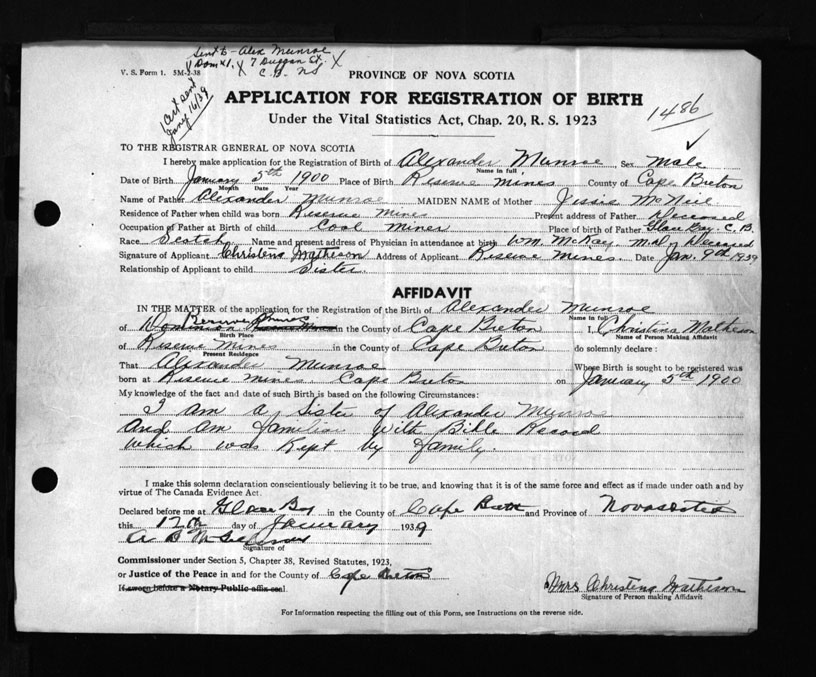 Sent to - Alex Munroe
V. S. Form 1. 5M-2-38
Dom #1. X 7 Duggan St. X
C.B. NS
Cert sent
Jany 16/39
PROVINCE OF NOVA SCOTIA
APPLICATION FOR REGISTRATION OF BIRTH
Under the Vital Statistics Act, Chap. 20, R. S. 1923
1486
TO THE REGISTRAR GENERAL OF NOVA SCOTIA
I hereby make application for the Registration of Birth of Alexander Munroe, Sex Male
Name in full
Date of Birth January 5th 1900 Place of Birth Reserve Mines County of Cape Breton
Month Date Year
Name of Father Alexander Munroe MAIDEN NAME of Mother Jessie McNeil
Residence of Father when child was born Reserve Mines Present address of Father Deceased
Occupation of Father at Birth of child Coal Miner Place of birth of Father Glace Bay. C.B.
Race Scotch Name and present address of Physician in attendance at birth Wm. McKay. M.D. Deceased
Signature of Applicant Christena Matheson Address of Applicant Reserve Mines. Date Jan. 9th 1939
Relationship of Applicant to child Sister
AFFIDAVIT
IN THE MATTER of the application for the Registration of the Birth of Alexander Munroe
Name in full
Reserve Mines
of Dominion in the County of Cape Breton I, Christina Matheson
Birth Place
Name of Person Making Affidavit
of Reserve Mines in the County of Cape Breton do solemnly declare :
Present Residence
That Alexander Munroe Whose Birth is sought to be registered was
born at Reserve Mines Cape Breton on January 5th 1900
My knowledge of the fact and date of such Birth is based on the following Circumstances:
I am a Sister of Alexander Munroe
And am Familiar With Bible Record
Which was Kept by Family.
I make this solemn declaration conscientiously believing it to be true, and knowing that it is of the same force and effect as if made under oath and by
virtue of The Canada Evidence Act.
Declared before me at Glace Bay in the County of Cape Breton and Province of Nova Scotia
this 12th day of January 1939
A B
Signature of
Commissioner under Section 5, Chapter 38, Revised Statutes, 1923,
or Justice of the Peace in and for the County of Cape Breton
If sworn before a Notary Public affix seal.
Mrs Christena Matheson
Signature of Person making Affidavit
For Information respecting the filling out of this Form, see Instructions on the reverse side.